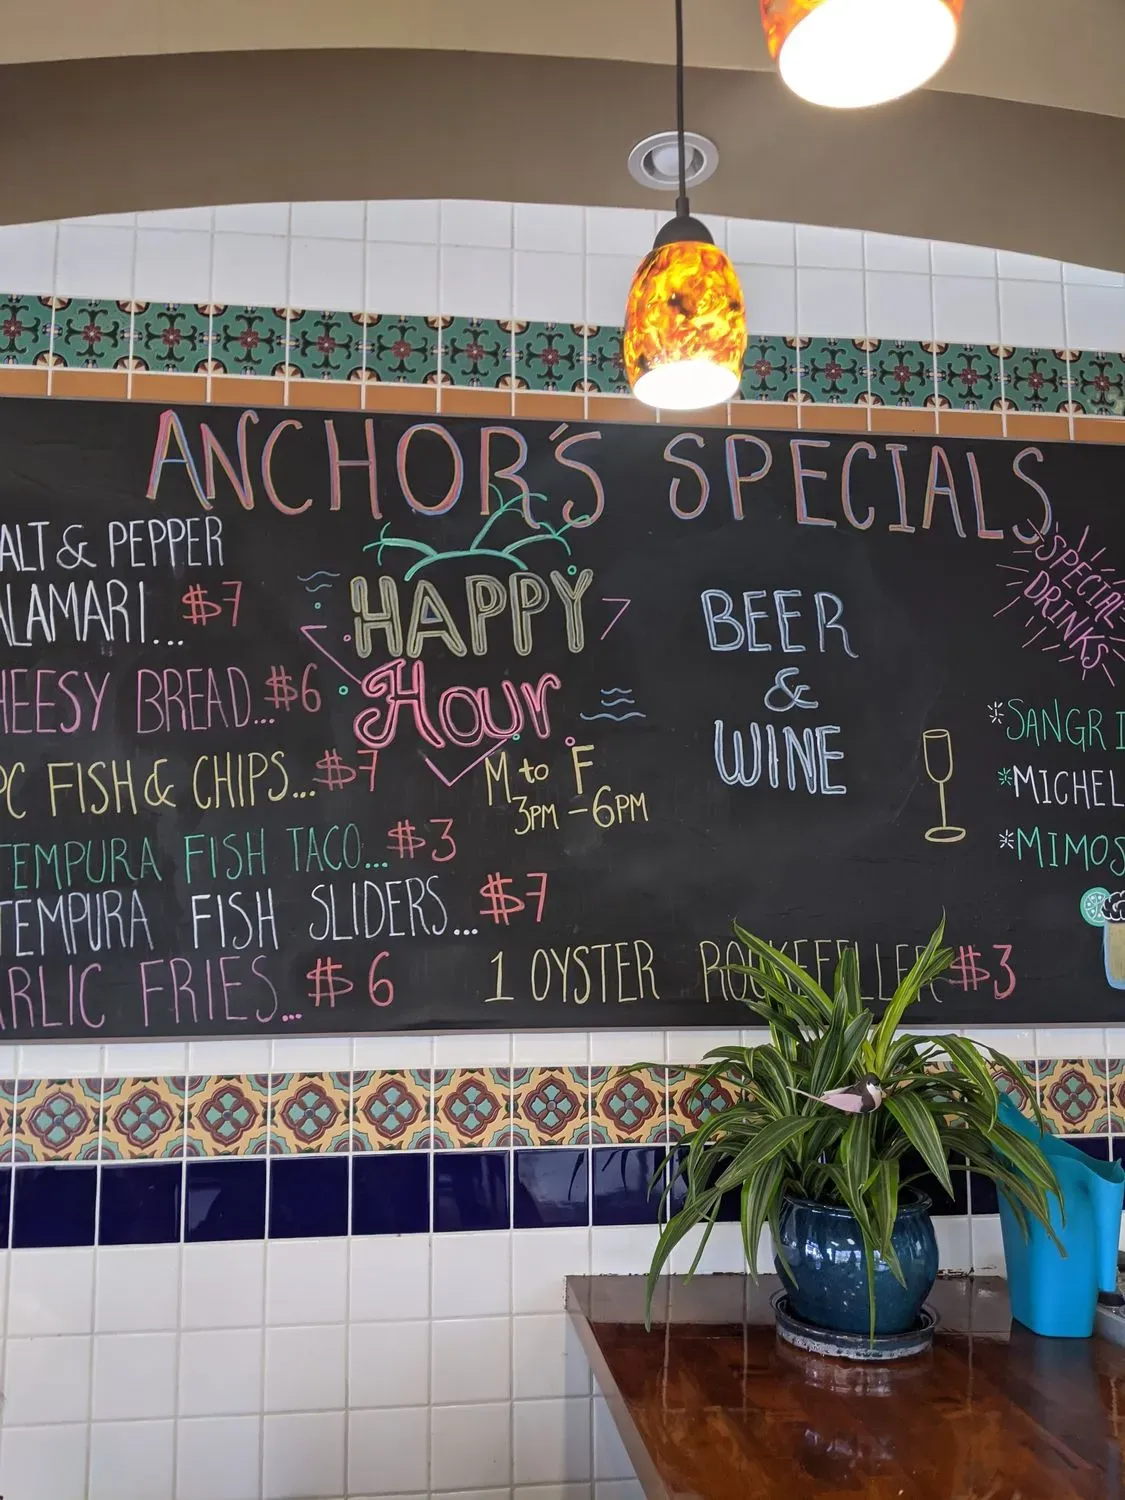 ANCHOR'S SPECIALS
ALT & PEPPER
ALAMARI... $7
HEESY BREAD... $6
PC FISH & CHIPS... $7
TEMPURA FISH TACO... $3
TEMPURA FISH SLIDERS... $7
ARLIC FRIES... $6
HAPPY
HOUR
M to F
3PM - 6PM
BEER
&
WINE
1 OYSTER ROCKEFELLER $3
SPECIAL
DRINKS
*SANGRI
*MICHEL
*MIMOS